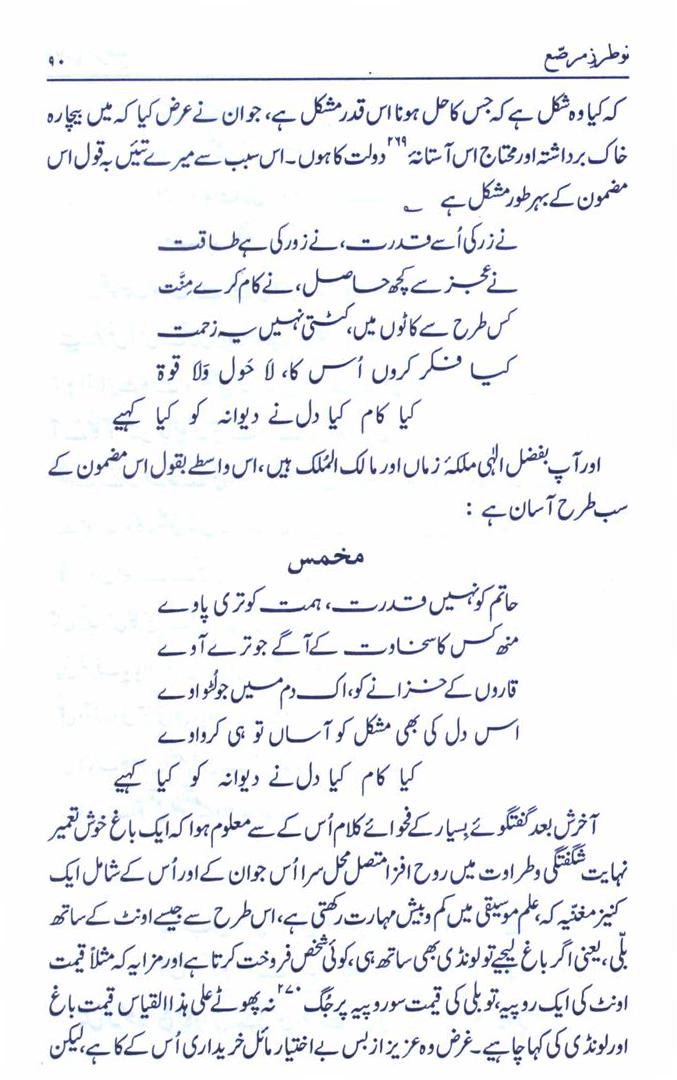 نو طرزِ مرصّع
۹۰
کہ کیا وہ شکل ہے کہ جس کا حل ہونا اس قدر مشکل ہے، جوان نے عرض کیا کہ میں بیچارہ
خاک برداشتہ اور محتاج اس آستانۂ ۲۶۹ دولت کا ہوں۔ اس سبب سے میرے تئیں بہ قول اس
مضمون کے بہر طور مشکل ہے ؎
نے زر کی اُسے قدرت، نے زور کی ہے طاقت
نے عجز سے کچھ حاصل، نے کام کرے مِنَّت
کس طرح سے کاٹوں میں، کٹتی نہیں یہ زحمت
کیا فکر کروں اُس کا، لَا حَول وَلَا قوۃ
کیا کام کیا دل نے دیوانہ کو کیا کہیے
اور آپ بفضل الٰہی ملکۂ زماں اور مالک المُلک ہیں، اس واسطے بقول اس مضمون کے
سب طرح آسان ہے :
مخمس
حاتم کو نہیں قدرت، ہمت کو تری پاوے
منھ کس کا سخاوت کے آگے جو ترے آوے
قاروں کے خزانے کو، اک دم میں جو لُٹواوے
اس دل کی بھی مشکل کو آساں تو ہی کرواوے
کیا کام کیا دل نے دیوانہ کو کیا کہیے
آخرش بعد گفتگوئے بِسیار کے فحوائے کلام اُس کے سے معلوم ہوا کہ ایک باغ خوش تعمیر
نہایت شگفتگی و طراوت میں روح افزا متصل محل سرا اُس جوان کے اور اُس کے شامل ایک
کنیز مغنیہ کہ، علم موسیقی میں کم و بیش مہارت رکھتی ہے، اس طرح سے جیسے اونٹ کے ساتھ
بلّی، یعنی اگر باغ لیجیے تو لونڈی بھی ساتھ ہی، کوئی شخص فروخت کرتا ہے اور مزا یہ کہ مثلاً قیمت
اونٹ کی ایک روپیہ، تو بلی کی قیمت سو روپیہ پر جُگ ۲۷۰ نہ پھوٹے علیٰ ہذا القیاس قیمت باغ
اور لونڈی کی کہا چاہیے۔ غرض وہ عزیز از بس بے اختیار مائل خریداری اُس کے کا ہے، لیکن